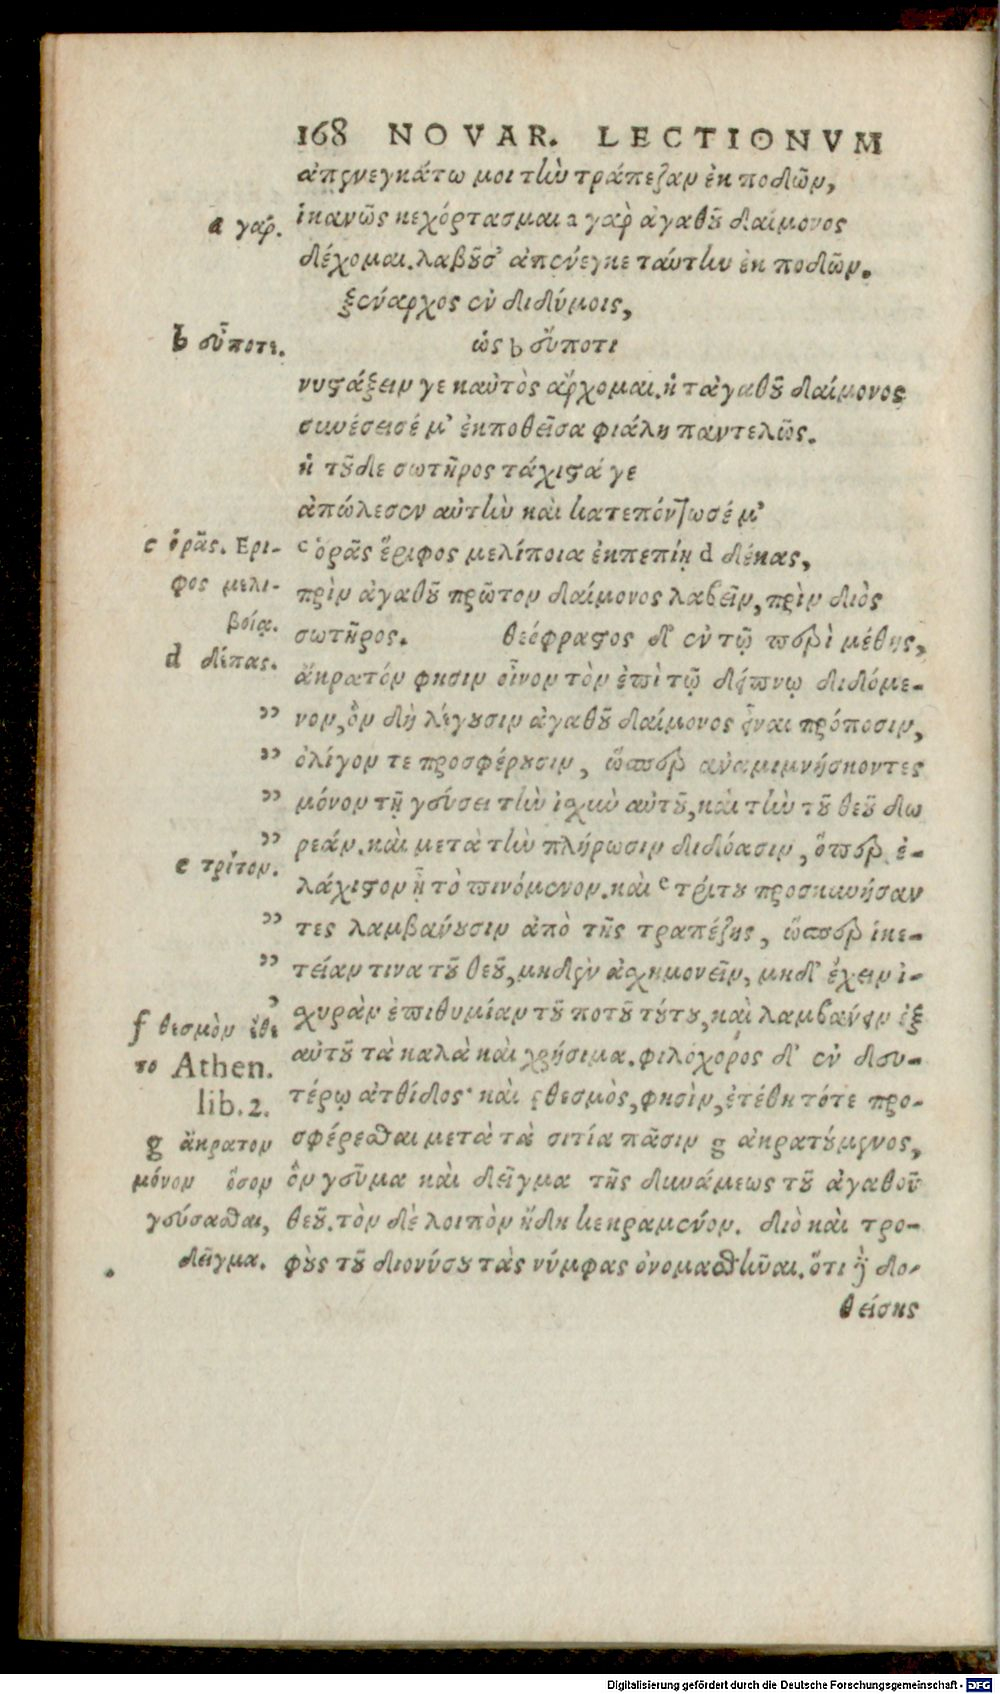 168 NOVAR. LECTIONVM
ἀπενεγκάτω μοι τὴν τράπεζαν ἐκ ποδῶν,
a γάρ.
ἱκανῶς κεχόρτασμαι a γαρ ἀγαθοῦ δαίμονος
δέχομαι. λαβοῦσ' ἀπένεγκε ταύτην ἐκ ποδῶν.
ξέναρχος ἐν διδύμοις,
b οὔποτε.
ὡς b οὔποτι
νυστάξειν γε καὐτὸς ἄρχομαι. ἡ τἀγαθοῦ δαίμονος
συνέσεισέ μ' ἐκποθεῖσα φιάλη παντελῶς.
ἡ τοῦδε σωτῆρος τάχιστά γε
ἀπώλεσεν αὐτὴν καὶ κατεπόντωσέ μ'
c ὁρᾶς. Ερι-
c ὁρᾶς ἔριφος μελίποια ἐκπεπίῃ d δέκας,
φος μελι-
βοίᾳ.
πρὶν ἀγαθοῦ πρῶτον δαίμονος λαβεῖν, πρὶν διὸς
d δέπας.
σωτῆρος. θεόφραστος δ' ἐν τῷ περὶ μέθης,
ἄκρατόν φησιν οἶνον τὸν ἐπὶ τῷ δείπνῳ διδόμε-
" νον, ὃν δὴ λέγουσιν ἀγαθοῦ δαίμονος εἶναι πρόποσιν,
" ὀλίγον τε προσφέρουσιν, ὥσπερ ἀναμιμνήσκοντες
" μόνον τῇ γεύσει τὴν ἰσχὺν αὐτοῦ, καὶ τὴν τοῦ θεοῦ δω
" ρεάν. καὶ μετὰ τὴν πλήρωσιν διδόασιν, ὅπερ ἐ-
e τρίτον.
λάχιστον ᾖ τὸ πινόμενον. καὶ e τρίτου προσκυνήσαν
" τες λαμβάνουσιν ἀπὸ τῆς τραπέζης, ὥσπερ ἱκε-
" τείαν τινα τοῦ θεοῦ, μηδὲν ἀσχημονεῖν, μηδ' ἔχειν ἰ-
" σχυρὰν ἐπιθυμίαν τοῦ ποτοῦ τούτου, καὶ λαμβάνειν ἐξ
f θεσμὸν ἔθε
το Athen.
lib. 2.
αὐτοῦ τὰ καλὰ καὶ χρήσιμα. φιλόχορος δ' ἐν δευ-
τέρῳ ἀτθίδος· καὶ f θεσμὸς, φησὶν, ἐτέθη τότε προ-
g ἄκρατον
μόνον ὅσον
γεύσασθαι,
δεῖγμα.
σφέρεσθαι μετὰ τὰ σιτία πᾶσιν g ἀκρατούμενος,
ὃν γεῦμα καὶ δεῖγμα τῆς δυνάμεως τοῦ ἀγαθοῦ
θεοῦ. τὸν δὲ λοιπὸν ἤδη κεκραμένον. διὸ καὶ τρο-
φοὺς τοῦ διονύσου τὰς νύμφας ὀνομασθῆναι. ὅτι δὲ δο-
θείσης
Digitalisierung gefördert durch die Deutsche Forschungsgemeinschaft - DFG